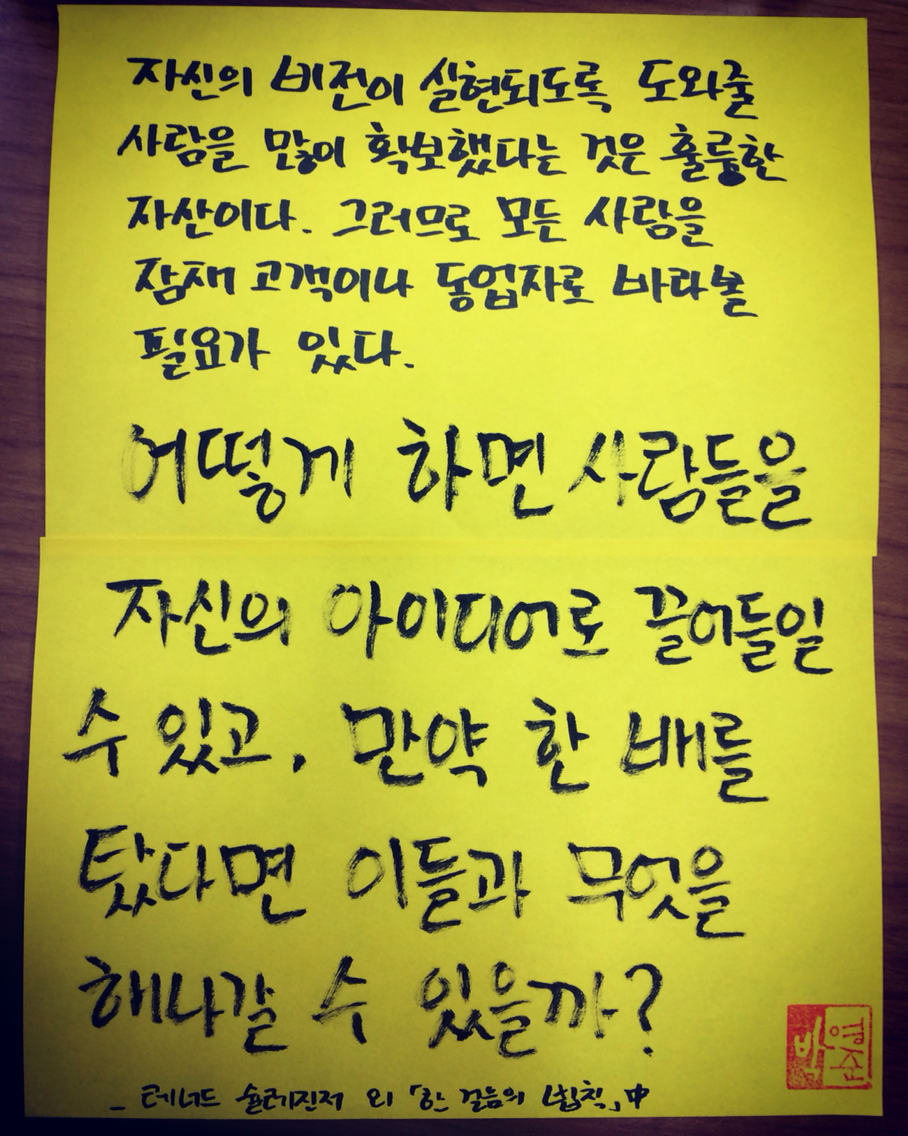 자신의 비전이 실현되도록 도와줄
사람을 많이 확보했다는 것은 훌륭한
자산이다. 그러므로 모든 사람을
잠재 고객이나 동업자로 바라볼
필요가 있다.
어떻게 하면 사람들을
자신의 아이디어로 끌어들일
수 있고, 만약 한 배를
탔다면 이들과 무엇을
해나갈 수 있을까?
_ 레너드 슐레진저 외 「한 걸음의 법칙」中
박영준